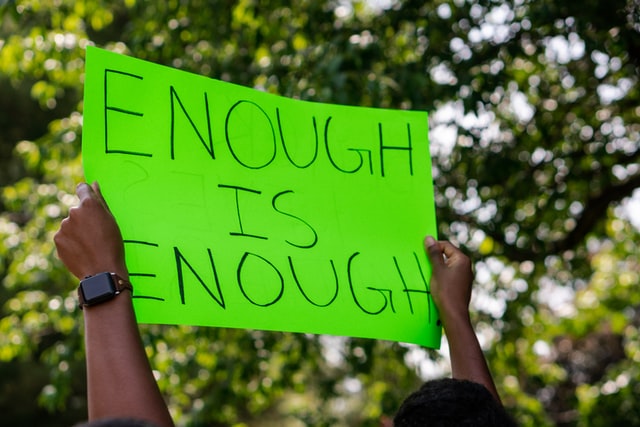 ENOUGH
IS
ENOUGH